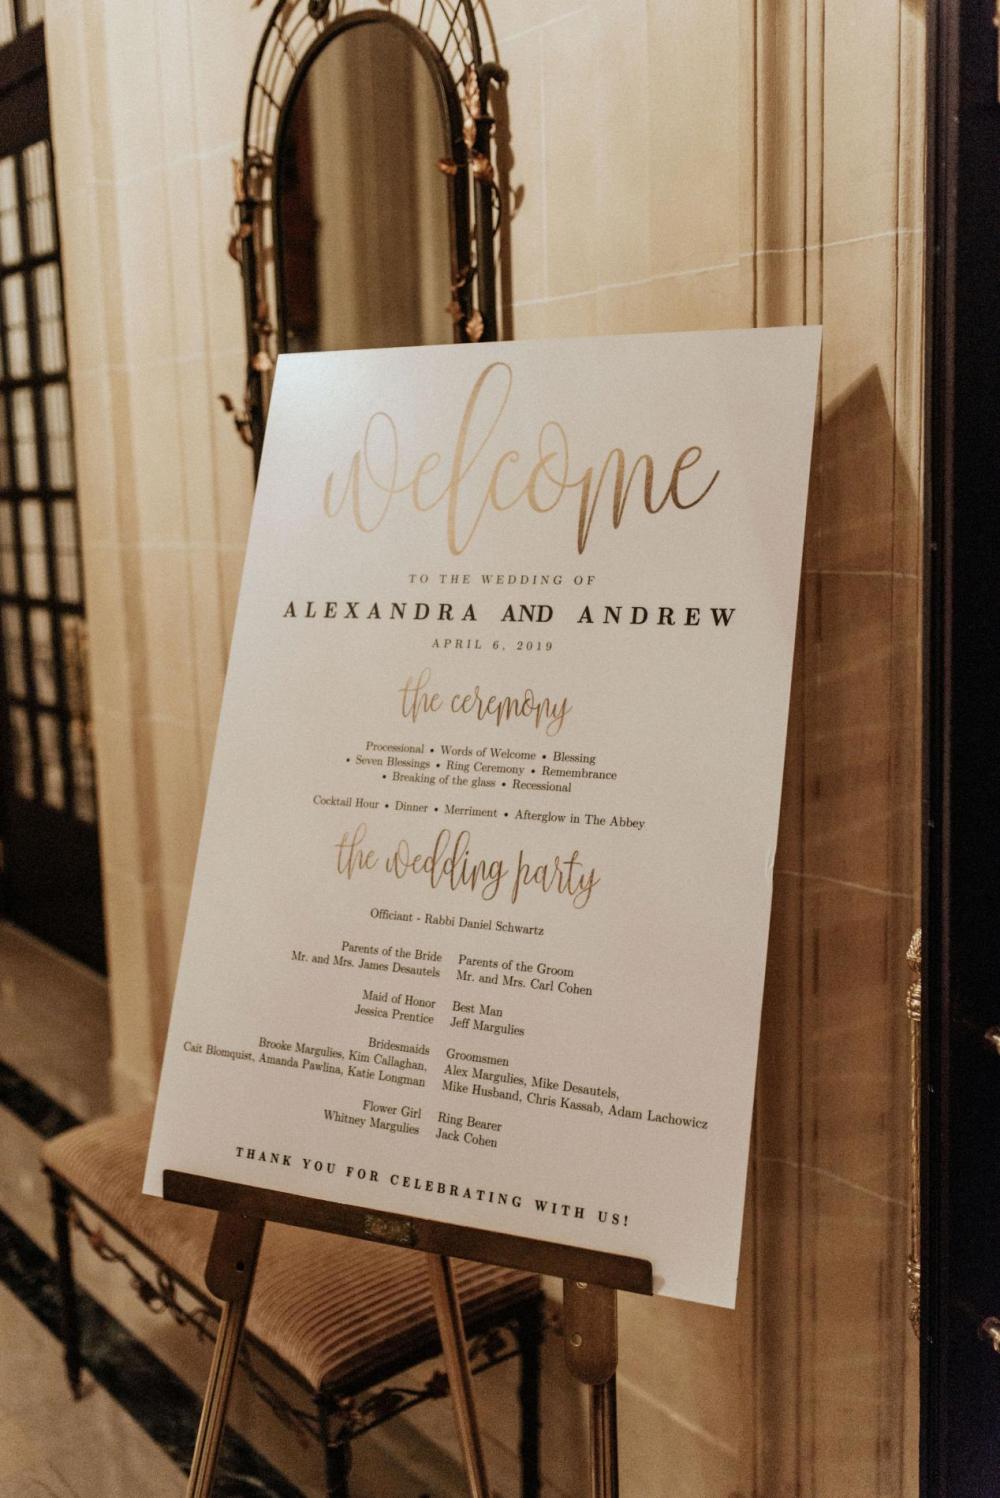 welcome
TO THE WEDDING OF
ALEXANDRA AND ANDREW
APRIL 6, 2019
the ceremony
Processional • Words of Welcome • Blessing
• Seven Blessings • Ring Ceremony • Remembrance
• Breaking of the glass • Recessional
Cocktail Hour • Dinner • Merriment • Afterglow in The Abbey
the wedding party
Officiant - Rabbi Daniel Schwartz
Parents of the Bride
Mr. and Mrs. James Desautels
Parents of the Groom
Mr. and Mrs. Carl Cohen
Maid of Honor
Jessica Prentice
Best Man
Jeff Margulies
Bridesmaids
Brooke Margulies, Kim Callaghan,
Cait Blomquist, Amanda Pawlina, Katie Longman
Groomsmen
Alex Margulies, Mike Desautels,
Mike Husband, Chris Kassab, Adam Lachowicz
Flower Girl
Whitney Margulies
Ring Bearer
Jack Cohen
THANK YOU FOR CELEBRATING WITH US!